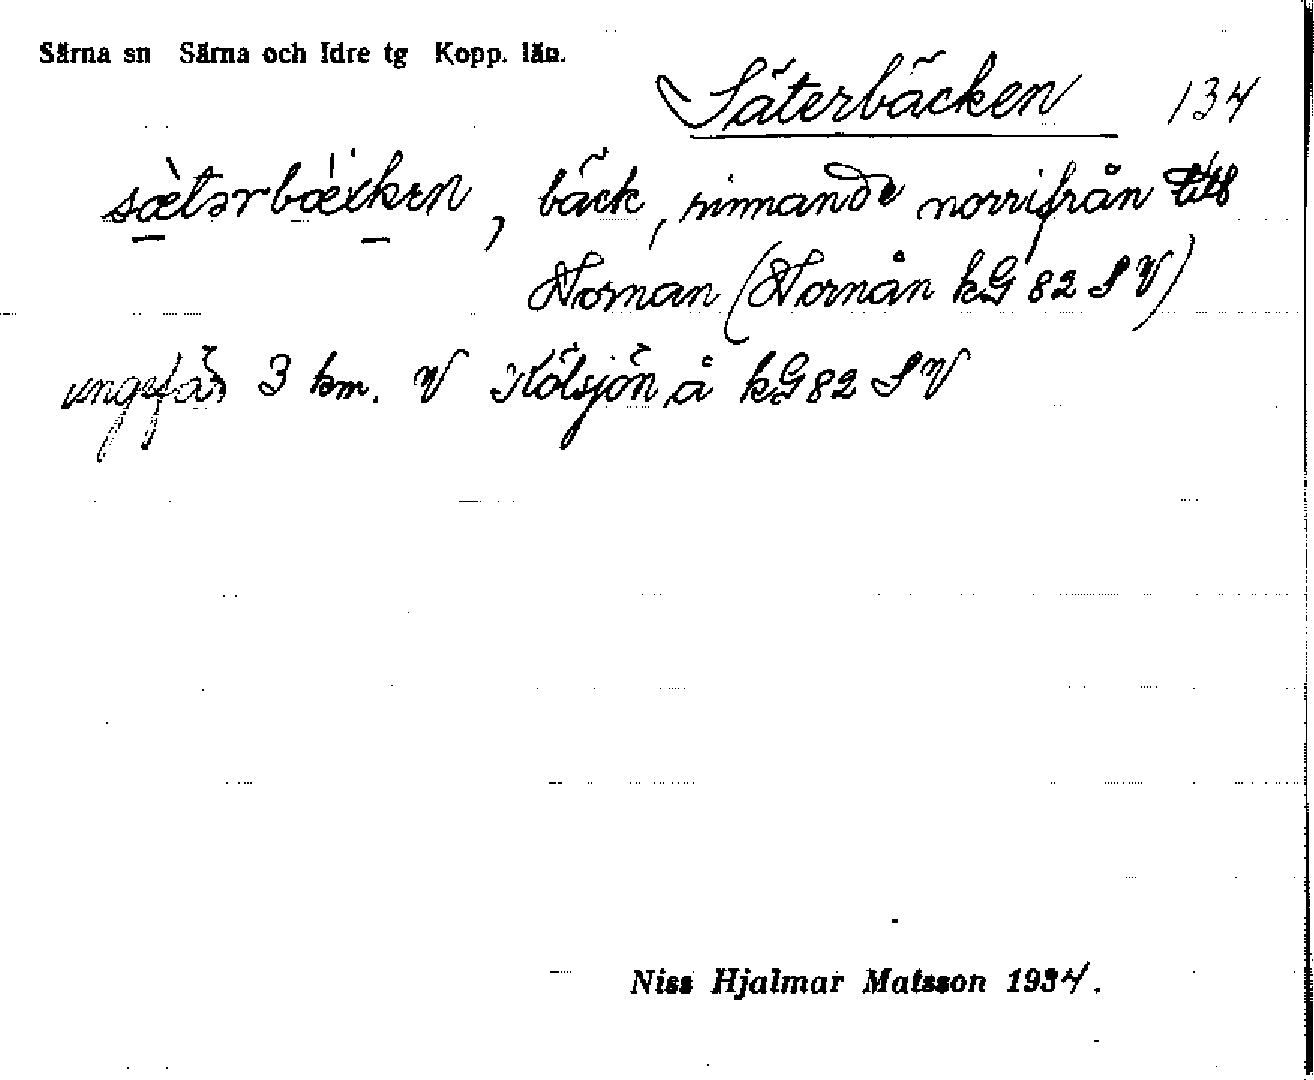 Särna sn Särna och Idre tg Kopp. län.
Säterbäcken 134
sæ̀tərbæ̀cken, bäck, rinnande norrifrån till
Nornan (Nornån kG 82 SV)
ungefär 3 km. V Kölsjön å kG 82 SV
Niss Hjalmar Matsson 1934.